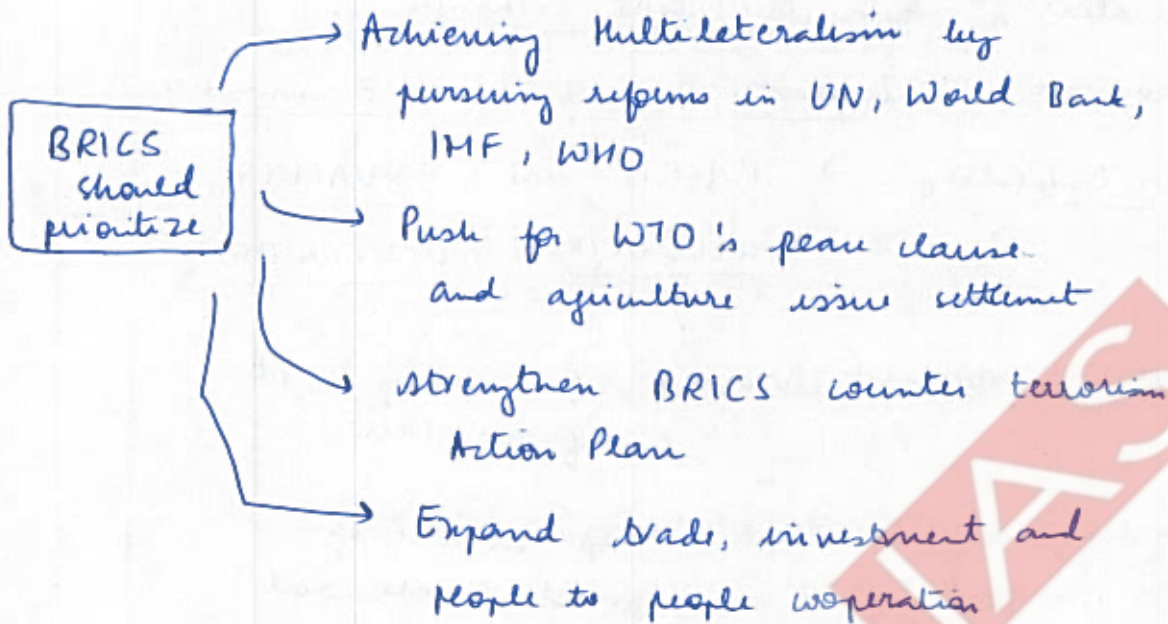 BRICS
should
prioritize
Achieving Multilateralism by
pursuing reforms in UN, World Bank,
IMF, WHO
Push for WTO's peace clause
and agriculture issue settlemet
strengthen BRICS counter terrorism
Action Plan
Expand trade, investment and
people to people cooperation
IAS